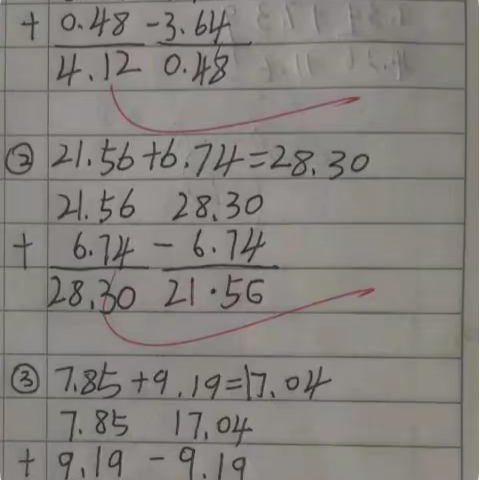 + 0.48 - 3.64
4.12 0.48
② 21.56+6.74=28.30
21.56 28.30
+ 6.74 - 6.74
28.30 21.56
③ 7.85+9.19=17.04
7.85 17.04
+ 9.19 - 9.19